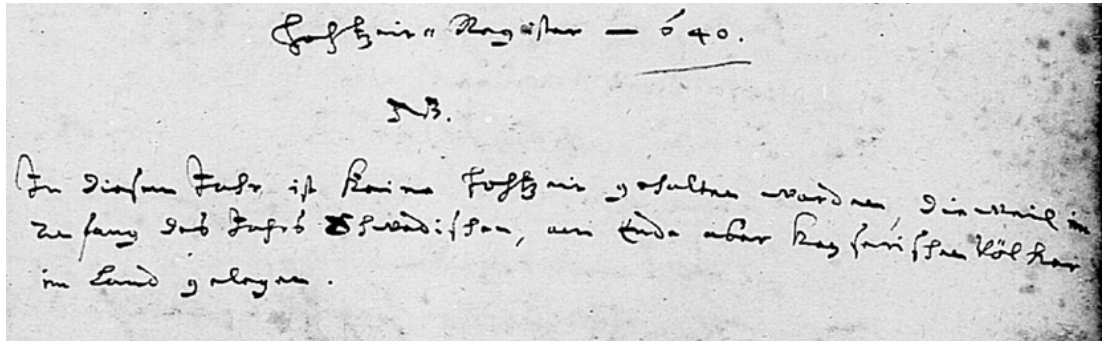 Hochzeit= Register — 640.
NB.
In diesem Jahr, ist keine Hochzeit gehalten worden, dieweil im
Anfang des Jahrs Schwedischen, am Ende aber Kayserischen Völker
im Land gelegen.